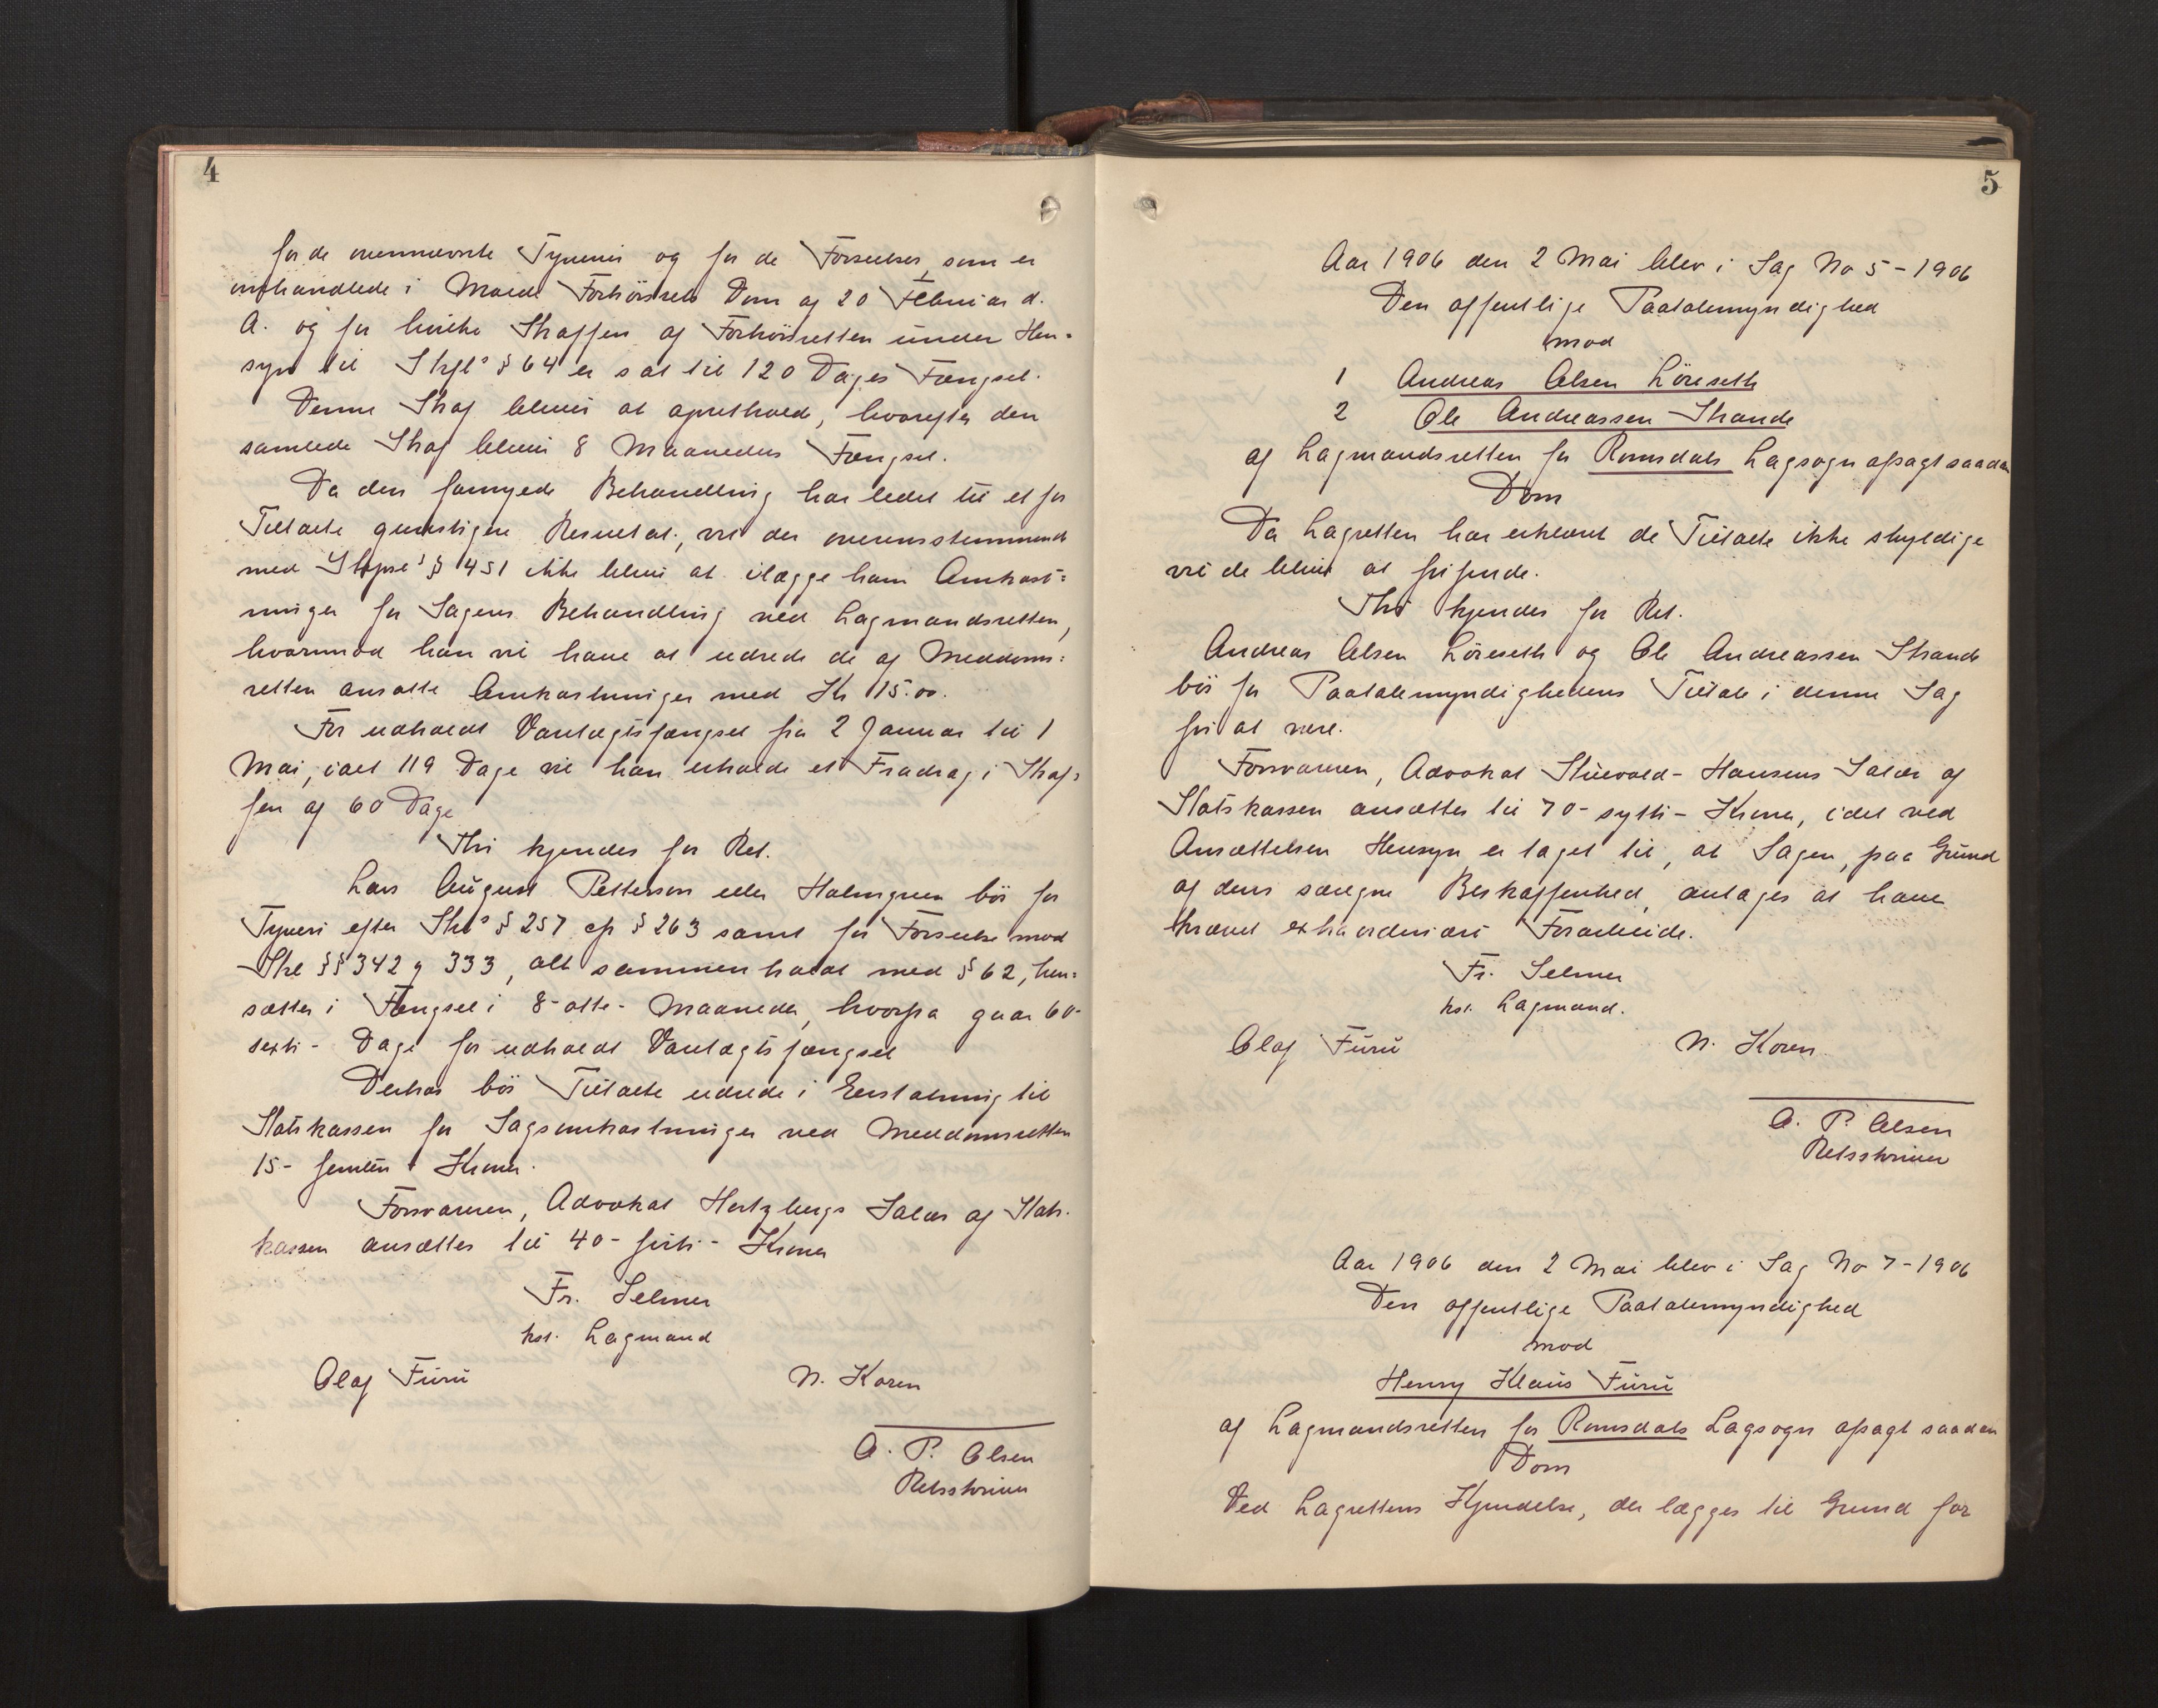 4
for de ovennævnte Tyverier og for de Forseelser, som er
omhandlede i Molde Forhörsrets Dom af 20 Februar d.
A. og for hvilke Straffen af Forhörsretten under Hen=
syn til Strfls § 64 er sat til 120 Dages Fængsel.
Denne Straf bliver at opretholde, hvorefter den
samlede Straf bliver 8 Maaneders Fængsel.
Da den fornyede Behandling har ledet til et for
Tiltalte gunstigere Resultat, vil der overensstemmende
med Strprl's § 451 ikke blive at ilægge ham Omkost=
ninger for Sagens Behandling ved Lagmandsretten,
hvorimod han vil have at udrede de af Meddoms=
retten ansatte Omkostninger med Kr 15.00.
For udholdt Varetægtsfængsel fra 2 Januar til 1
Mai, ialt 119 Dage vil han erholde et Fradrag i Straf=
fen af 60 Dage
Thi kjendes for Ret.
Lars August Petterson eller Holmgren bör for
Tyveri efter Strls § 257 cfr § 263 samt for Forseelse mod
Strl §§ 342 og 333, alt sammenholdt med § 62, hen=
sættes i Fængsel i 8-otte- Maaneder, hvorfra gaar 60-
sexti- Dage for udholdt Varetægtsfængsel
Derhos bör Tiltalte udrede i Erstatning til
Statskassen for Sagsomkostninger ved Meddomsretten
15- femten - Kroner.
Forsvareren, Advokat Hertzbergs Salær af Stats-
kassen ansættes til 40- firti- Kroner
Fr. Selmer
kst. Lagmand
Olaf Furu N. Koren
A. P. Olsen
Retsskriver
5
Aar 1906 den 2 Mai blev i Sag No 5-1906
Den offentlige Paatalemyndighed
mod
1 Andreas Olsen Löreseth
2 Ole Andreassen Strande
af Lagmandsretten for Romsdals Lagsogn afsagt saadan
Dom
Da Lagretten har erklæret de Tiltalte ikke skyldige
vil de blive at frifinde.
Thi kjendes for Ret.
Andreas Olsen Löreseth og Ole Andreassen Strande
bör for Paatalemyndighedens Tiltale i denne Sag
fri at være.
Forsvareren, Advokat Stuevold-Hansens Salær af
Statskassen ansættes til 70- sytti- Kroner, idet ved
Ansættelsen Hensyn er taget til, at Sagen, paa Grund
af dens særegne Beskaffenhed, antages at have
krævet extraordinært Forarbeide.
Fr. Selmer
kst. Lagmand.
Olaf Furu N. Koren
A. P. Olsen
Retsskriver
Aar 1906 den 2 Mai blev i Sag No 7-1906
Den offentlige Paatalemyndighed
mod
Henry Klaus Furu
af Lagmandsretten for Romsdals Lagsogn afsagt saadan
Dom
Ved Lagrettens Kjendelse, der lægges til Grund for